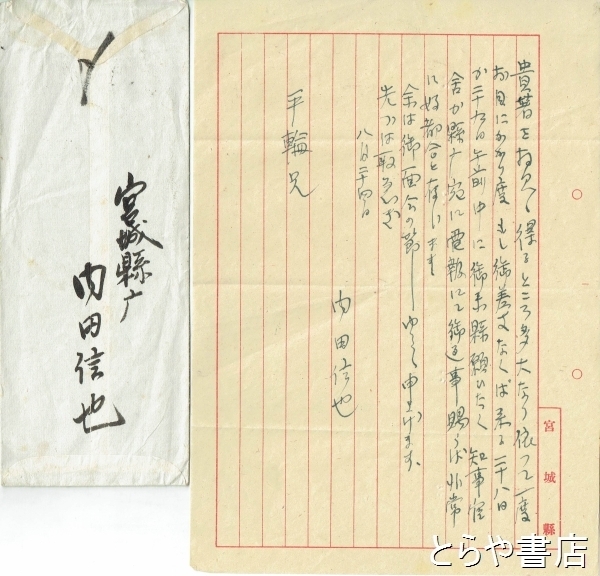 宮城縣庁
内田信也
貴著を拝見し得るところ多大なり依つて一度
お目にかかり度 もし御差支なくば来る二十八日
か二十九日午前中に御来縣願ひたく 知事官
舎か縣庁宛に電報にて御返事賜らば非常
に好都合と存じます
余は御面会の節ゆるゆる申上げます
先づは取急ぎ
八月二十四日
内田信也
平輪兄
宮城縣
とらや書店